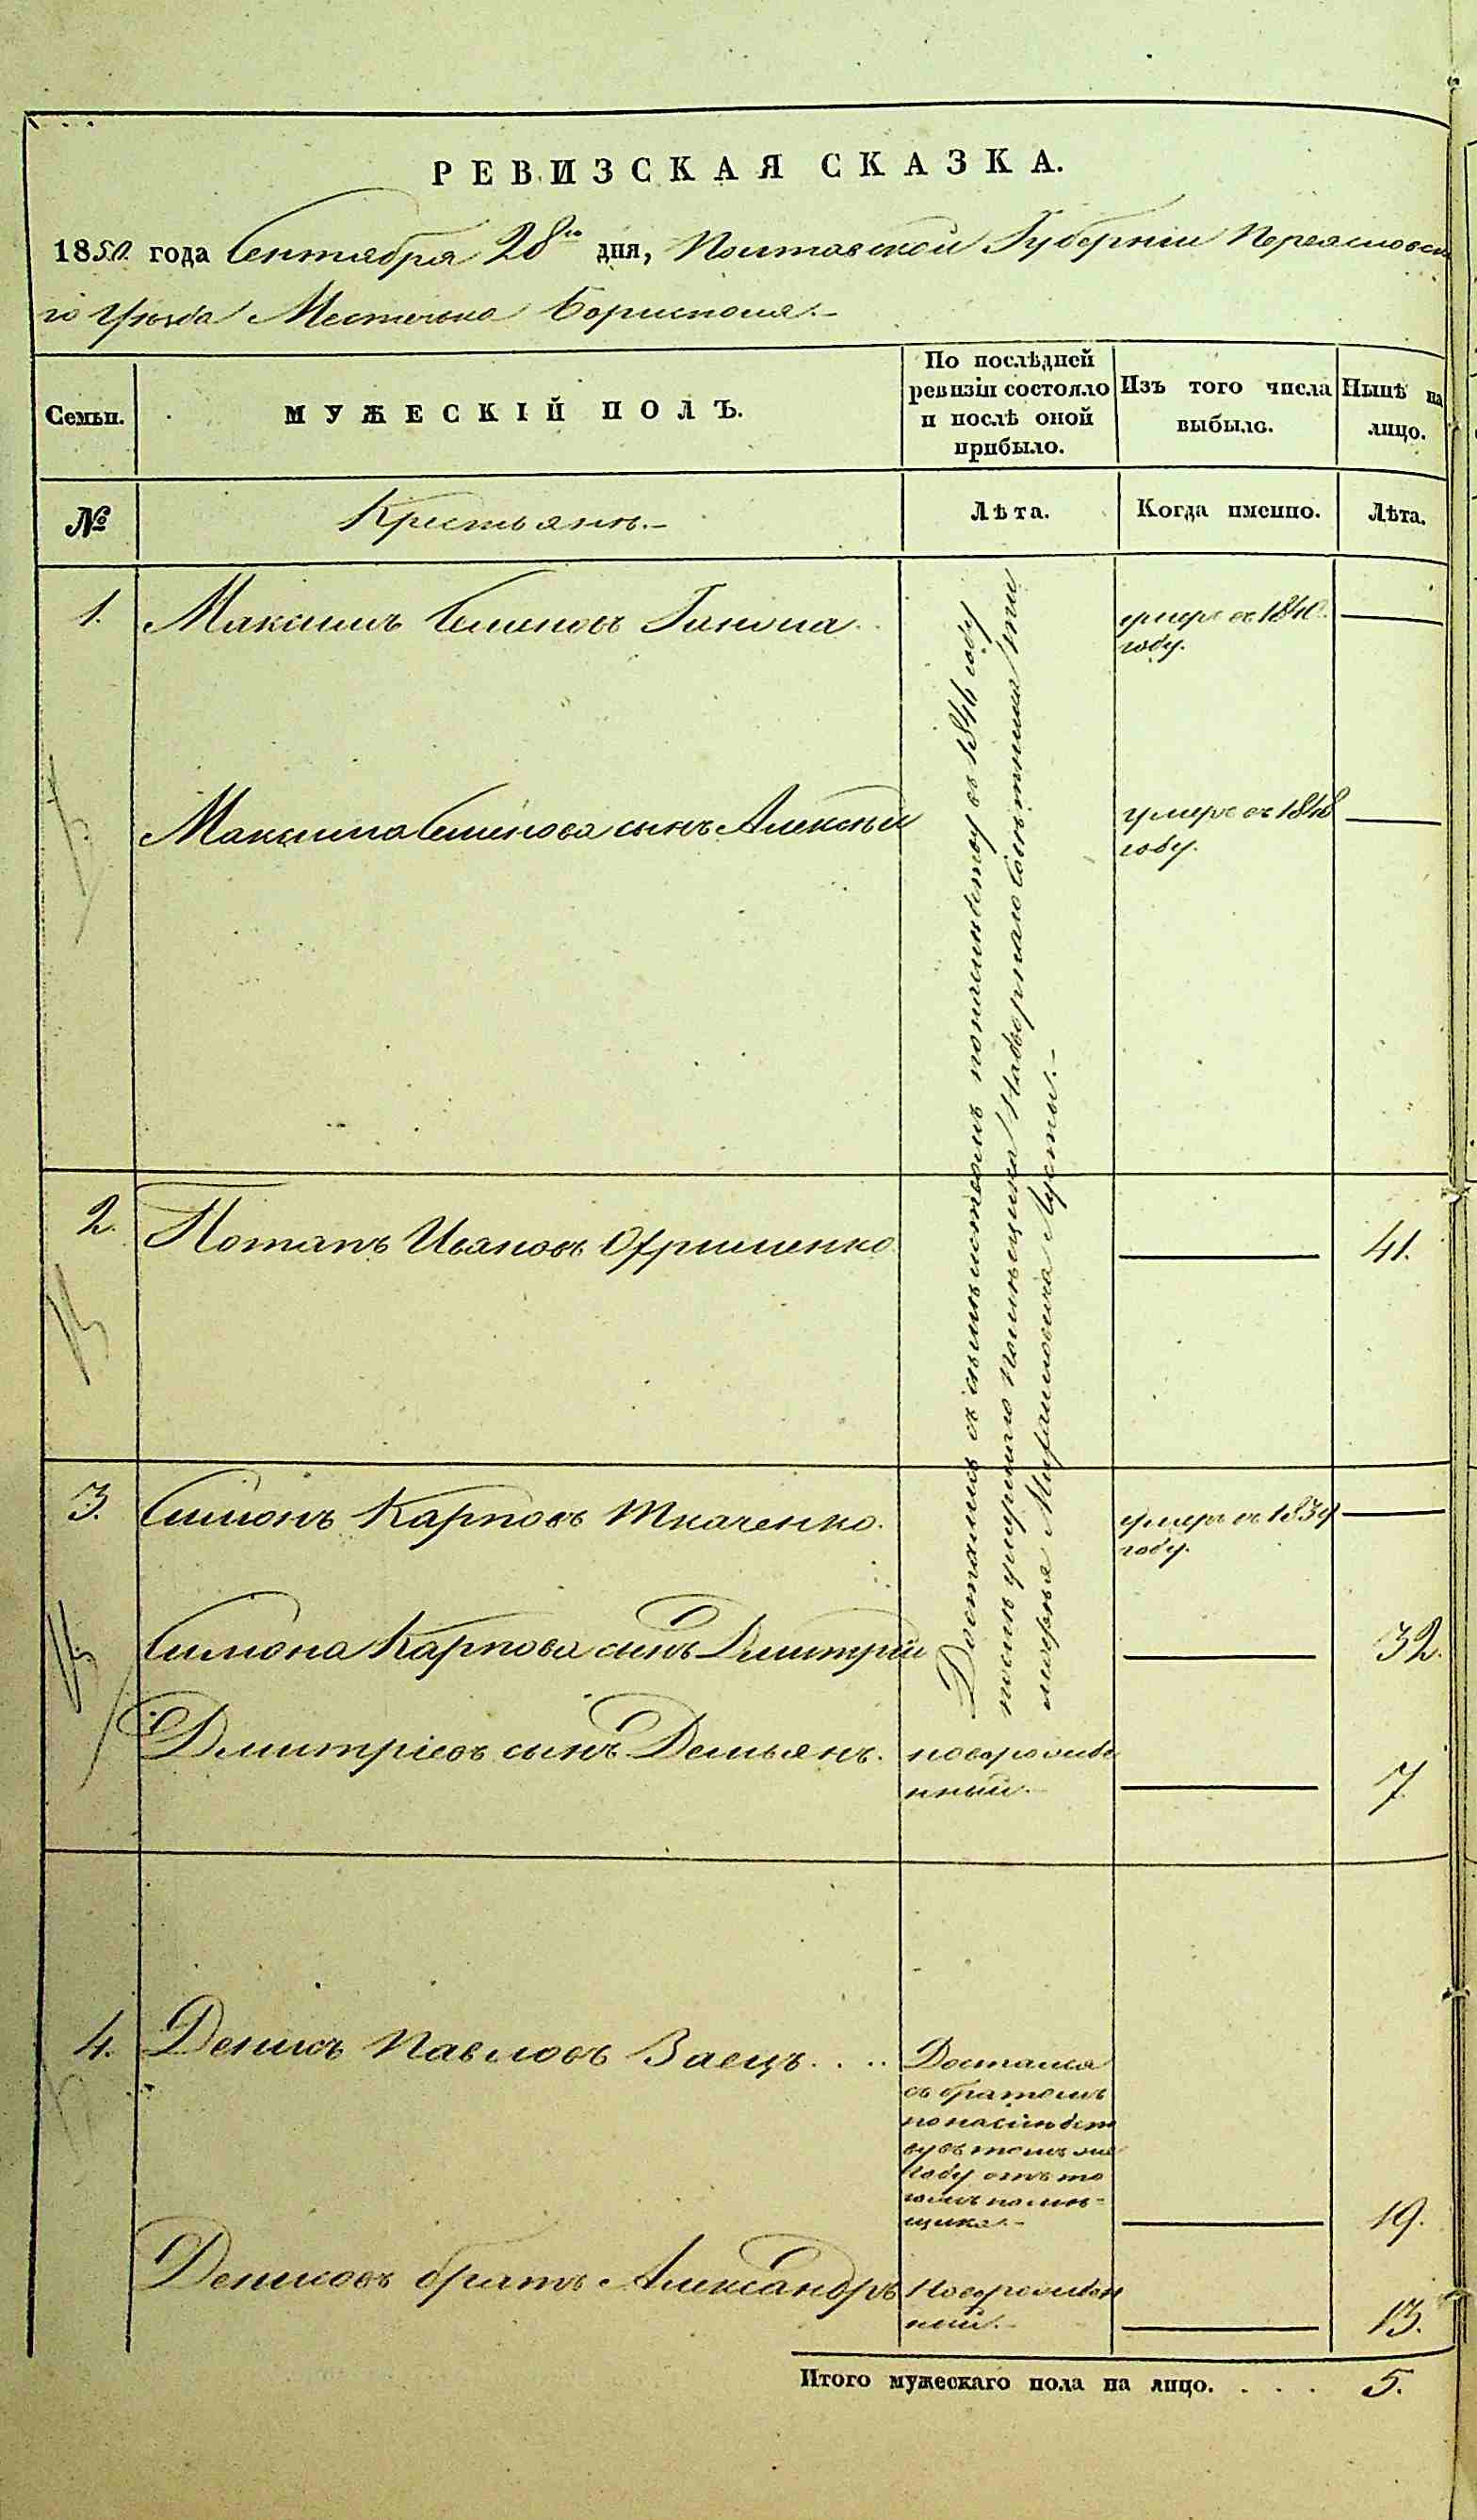 РЕВИЗСКАЯ СКАЗКА.
1850 года Сентября 28го дня, Полтавской Губерніи Переясловска
го Уѣзда Местечка Борисполя.-
Семьи.
МУЖЕСКІЙ ПОЛЪ.
По послѣдней
ревизіи состояло
и послѣ оной
прибыло.
Изъ того числа
выбыло.
Нынѣ на
лицо.
№
Крестьянъ.-
Лѣта.
Когда именно.
Лѣта.
1. Максимъ Семеновъ
умеръ въ 1840
году.
Максима Семенова сынъ Алексѣй
умеръ въ 1848
году.
Достались съ семействомъ по наслѣдству въ 1846 году
послѣ умершаго помѣщика Надворнаго Совѣтника
2. Потапъ Ивановъ Офрименко
41.
3. Симонъ Карповъ Ткаченко.
умеръ въ 1839
году.
Симона Карпова сынъ Дмитрій
32.
Дмитріевъ сынъ Демьянъ.
новорожде
нный.-
7
4. Денисъ Павловъ Заецъ....
Достался
съ братомъ
по наслѣдст
ву въ томъ же
году отъ то
гожъ помѣ-
щика.-
19.
Денисовъ братъ Александръ
Новорожден
ный.-
13.
Итого мужескаго пола на лицо. . . . 5.